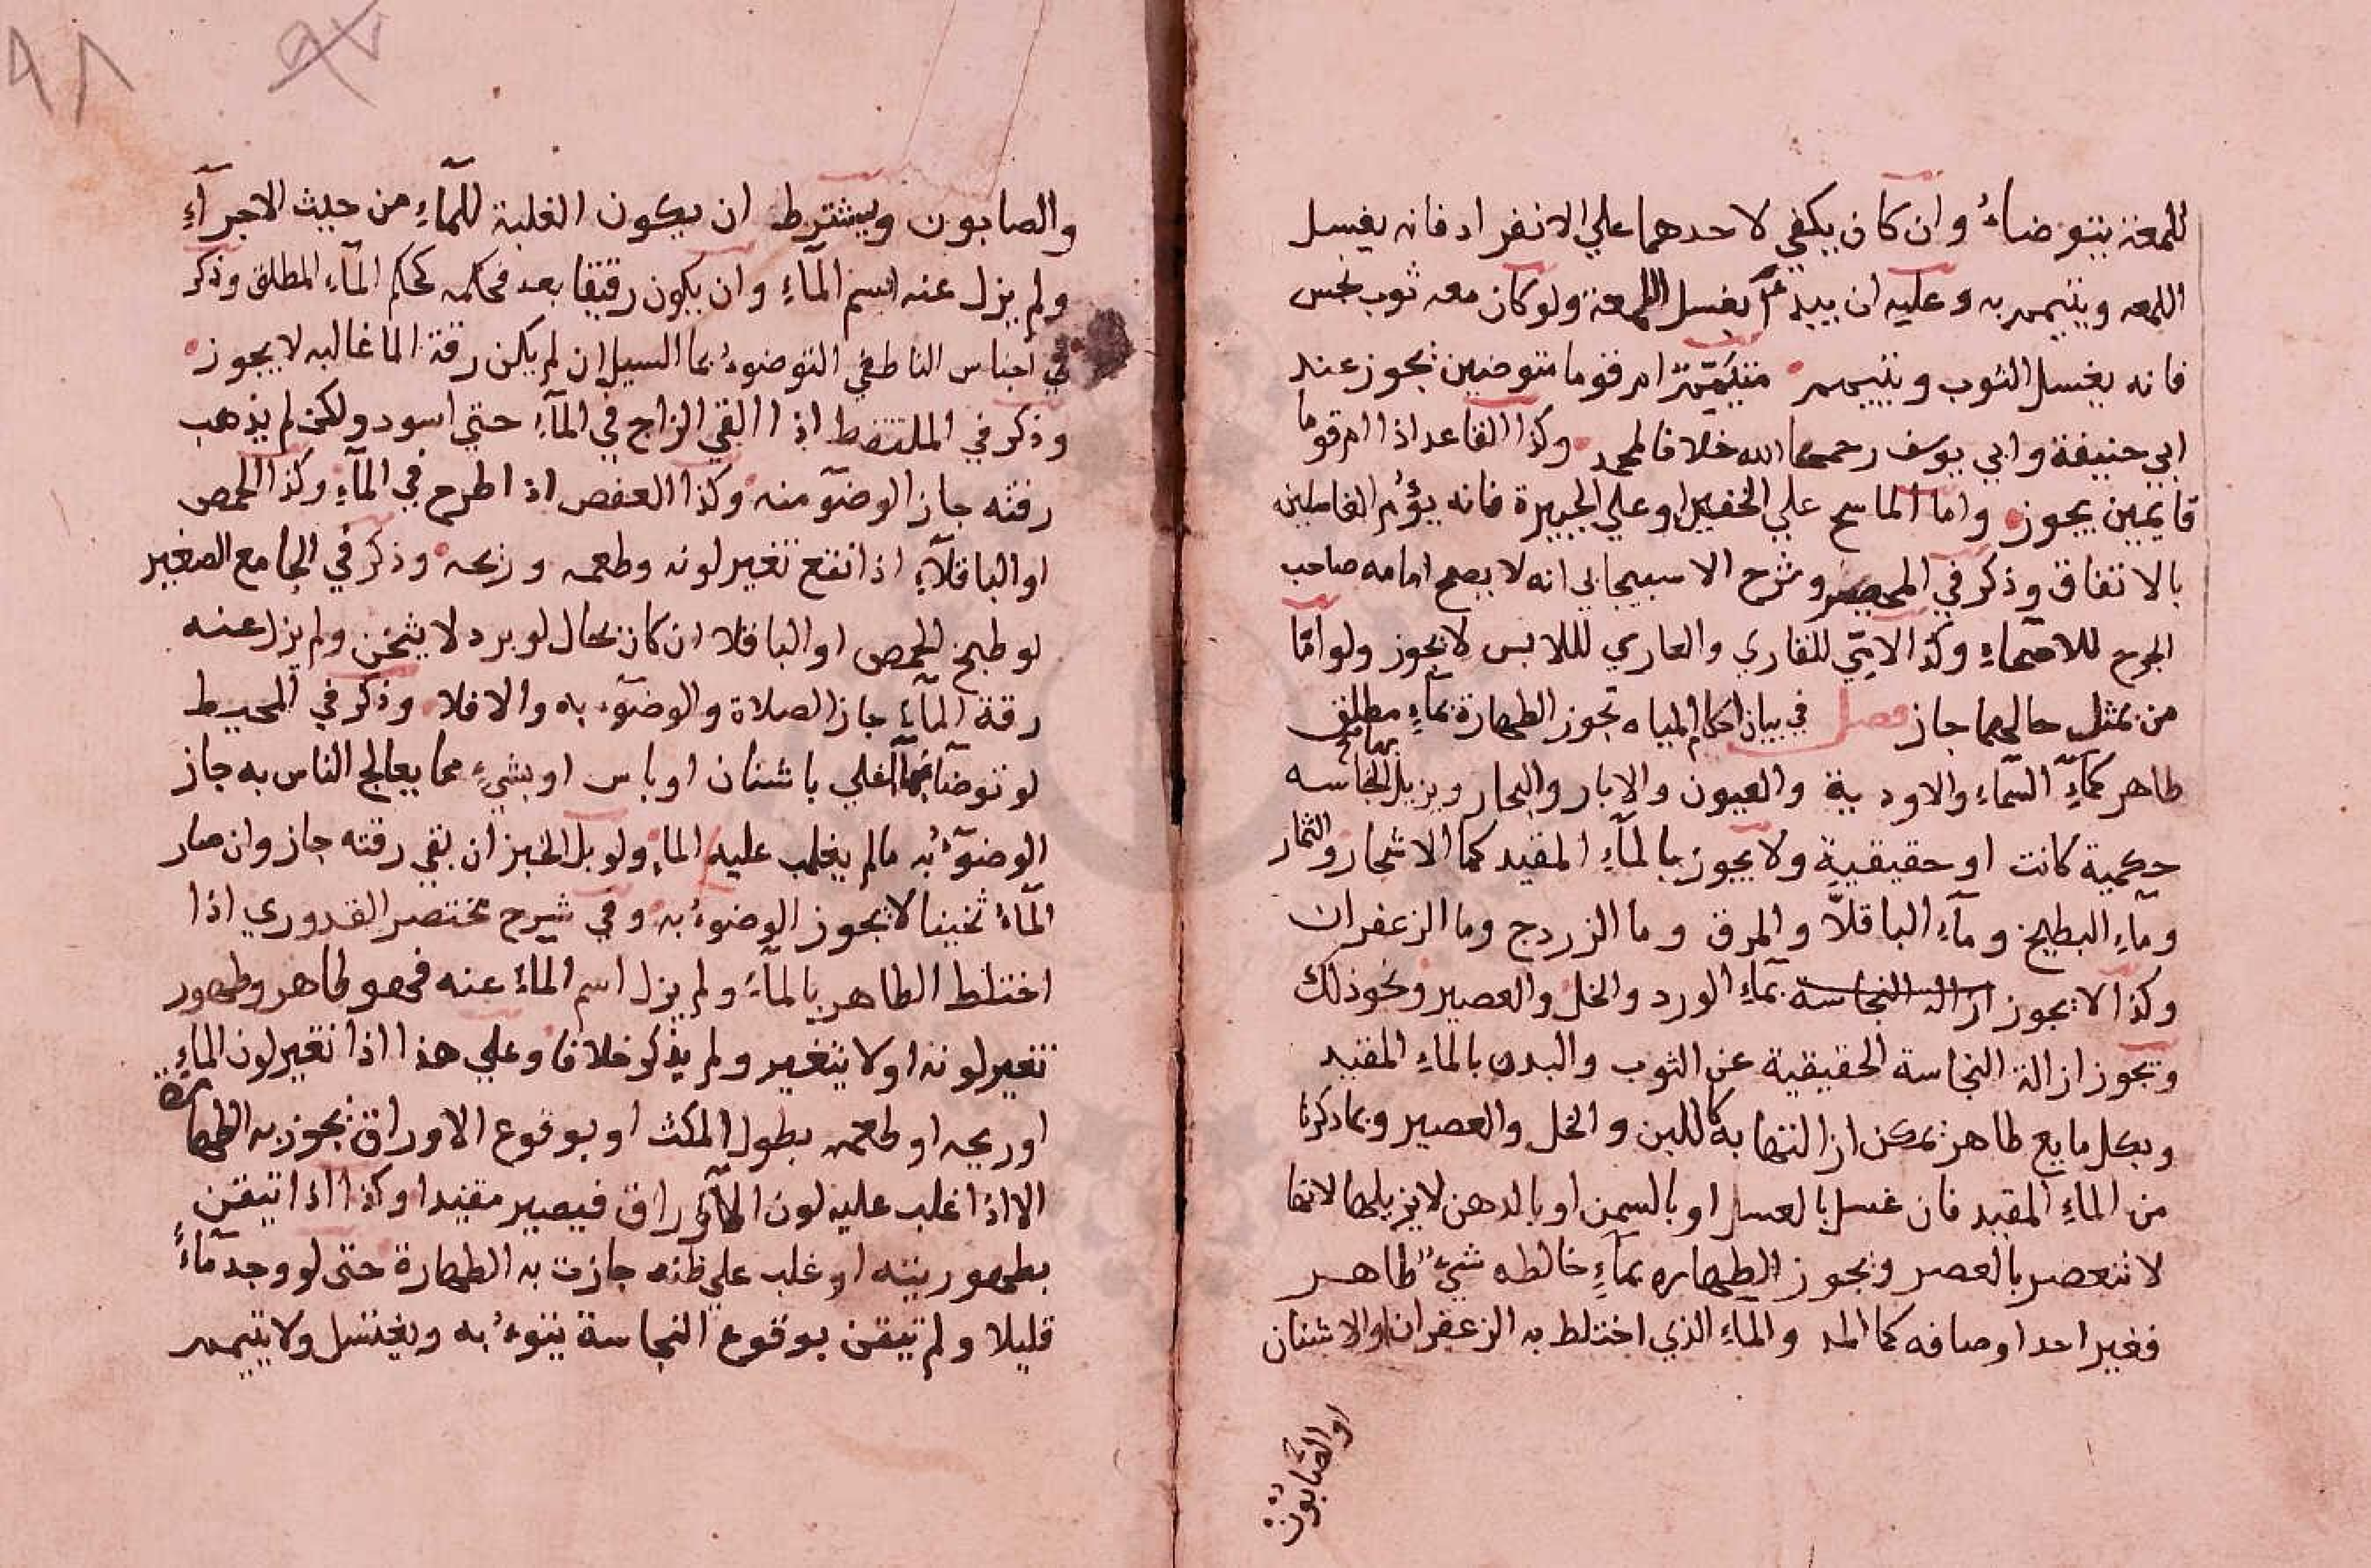 للمعة يتوضاء وان كان يكفي لاحدهما علي الانفراد فانه يغسل
اللمعه ويتيمم به وعليه ان يبدء بغسل اللمعة ولو كان معه ثوب نجس
فانه يغسل الثوب ويتيمم متيمم ام قوما متوضين يجوز عند
ابي حنيفة وابي يوسف رحمهما الله خلافا لمحمد وكذا القاعد اذا ام قوما
قايمين يجوز واما الماسح علي الخفين او علي الجبيرة فانه يؤم الغاسلين
بالاتفاق وذكر في المحيط وشرح الاسبيجابي انه لا يصح امامه صاحب
الجرح للاصحاء وكذا الامي للقاري والعاري لللابس لا يجوز ولو اما
من بمثل حالهما جاز فصل في بيان احكام المياه تجوز الطهارة بماء مطلق
طاهر كماء السماء والاودية والعيون والابار والبحار ويزيل بها النجاسه
حكمية كانت او حقيقية ولا يجوز بالماء المقيد كما الاشجار والثمار
وماء البطيخ وماء الباقلا والمرق وما الزردج وما الزعفران
وكذا لا يجوز ازالة النجاسة بماء الورد والخل والعصير ونحو ذلك
وتجوز ازالة النجاسة الحقيقية عن الثوب والبدن بالماء المقيد
وبكل مايع طاهر يمكن ازالتها به كاللبن والخل والعصير وبما ذكرنا
من الماء المقيد فان غسل بالعسل او بالسمن او بالدهن لا يزيلها لانها
لا تنعصر بالعصر وتجوز الطهاره بماء خالطه شيء طاهر
فغير احد اوصافه كما المد والماء الذي اختلط به الزعفران او الاشنان
او الصابون
٩٧
٩٨
والصابون ويشترط ان يكون الغلبة للماء من حيث الاجزآء
ولم يزل عنه اسم الماء وان يكون رقيقا بعد فحكمه كحكم الماء المطلق وذكر
في اجناس الناطفي التوضوء بما السيل ان لم يكن رقة الما غالبه لا يجوز
وذكر في الملتقط اذا القي الزاج في الماء حتي اسود ولكن لم يذهب
رقته جاز الوضوء منه وكذا العفص اذا طرح في الماء وكذا الحمص
او الباقلاء اذا نقع تغير لونه وطعمه وريحه وذكر في الجامع الصغير
لو طبخ الحمص او الباقلا ان كان بحال لو برد لا يثخن ولم يزل عنه
رقة الماء جاز الصلاة والوضوء به والا فلا وذكر في المحيط
لو توضا بما اغلي باشنان او باس او بشيء مما يعالج الناس به جاز
الوضوء به مالم يغلب عليه الماء ولو بل الخبز ان بقي رقته جاز وان صار
الماء ثخينا لا يجوز الوضوء به وفي شرح مختصر القدوري اذا
اختلط الطاهر بالماء ولم يزل اسم الماء عنه فهو طاهر وطهور
تغير لونه او لا يتغير ولم يذكر خلافا وعلي هذا اذا تغير لون الماء
او ريحه او طعمه بطول المكث او بوقوع الاوراق يجوز به الطهارة
الا اذا غلب عليه لون الاوراق فيصير مقيدا وكذا اذا تيقن
بطهوريته او غلب علي ظنه جازت به الطهارة حتى لو وجد ماء
قليلا ولم تيقن بوقوع النجاسة يتوء به ويغتسل ولا يتيمم